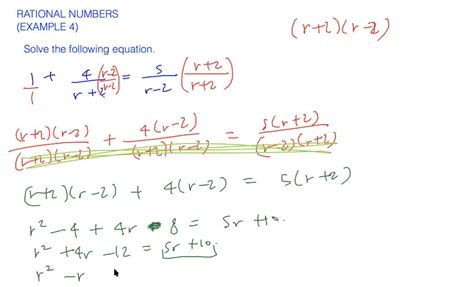 RATIONAL NUMBERS
(EXAMPLE 4)
(r+2)(r-2)
Solve the following equation.
1/1 + 4/(r+2) (r-2)/(r-2) = 5/(r-2) (r+2)/(r+2)
(r+2)(r-2)/(r+2)(r-2) + 4(r-2)/(r+2)(r-2) = 5(r+2)/(r-2)(r+2)
(r+2)(r-2) + 4(r-2) = 5(r+2)
r² - 4 + 4r - 8 = 5r + 10.
r² + 4r - 12 = 5r + 10
r² - r